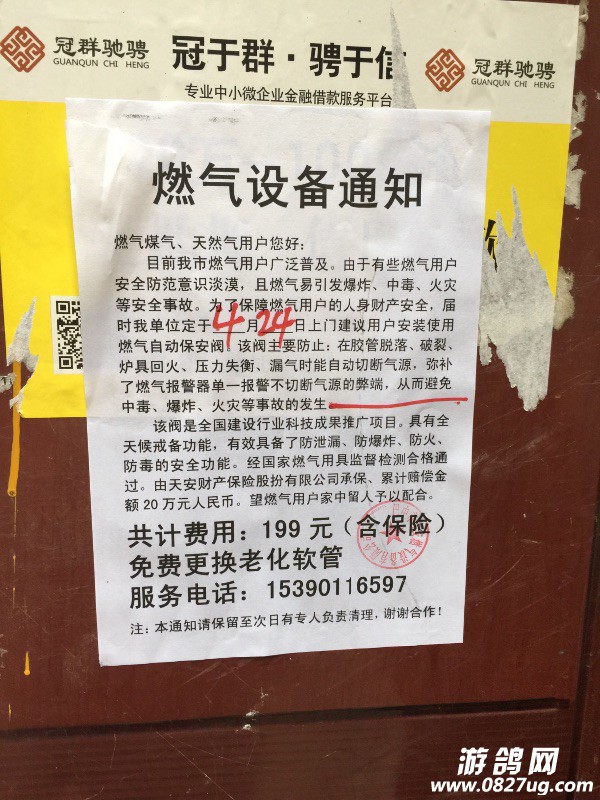 冠群驰骋
GUANQUN CHI HENG
冠于群·骋于信
专业中小微企业金融借款服务平台
冠群驰骋
GUANQUN CHI HENG
燃气设备通知
燃气煤气、天然气用户您好:
目前我市燃气用户广泛普及。由于有些燃气用户
安全防范意识淡漠,且燃气易引发爆炸、中毒、火灾
等安全事故。为了保障燃气用户的人身财产安全,届
时我单位定于4月24日上门建议用户安装使用
燃气自动保安阀。该阀主要防止:在胶管脱落、破裂、
炉具回火、压力失衡、漏气时能自动切断气源,弥补
了燃气报警器单一报警不切断气源的弊端,从而避免
中毒、爆炸、火灾等事故的发生
该阀是全国建设行业科技成果推广项目。具有全
天候戒备功能,有效具备了防泄漏、防爆炸、防火、
防毒的安全功能。经国家燃气用具监督检测合格通
过。由天安财产保险股份有限公司承保、累计赔偿金
额20万元人民币。望燃气用户家中留人予以配合。
共计费用:199元(含保险)
免费更换老化软管
服务电话:15390116597
注:本通知请保留至次日有专人负责清理,谢谢合作!
游鸽网
www.0827ug.com